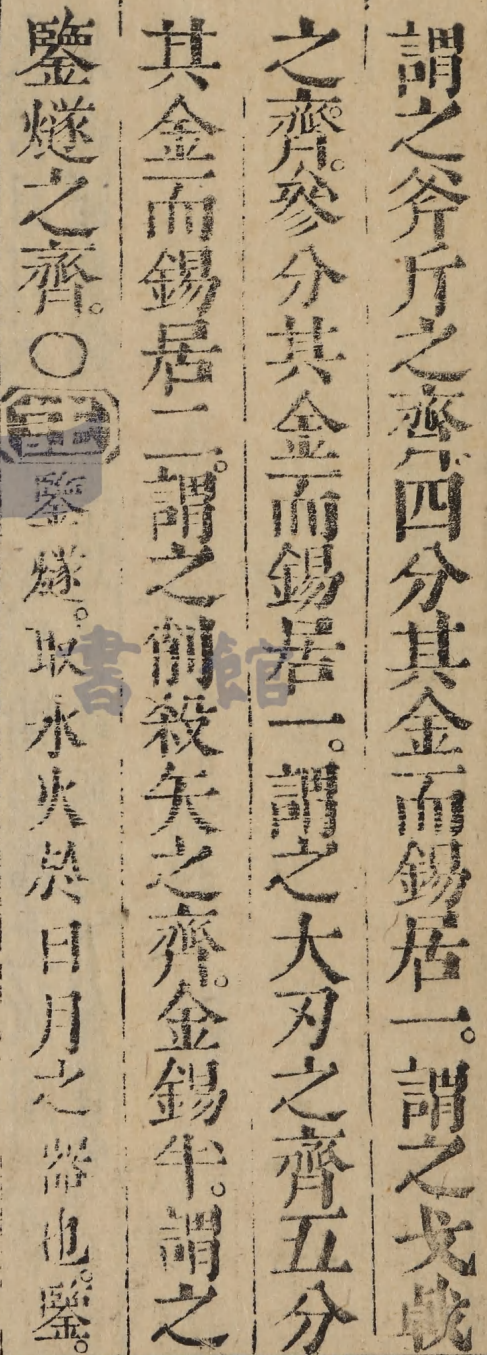 謂之斧斤之齊。四分其金而錫居一。謂之戈戟
之齊。參分其金而錫居一。謂之大刃之齊五分
其金而錫居二。謂之削殺矢之齊。金錫半。謂之
鑒燧之齊。○註鑒燧。取水火於日月之器也。鑒。
書館